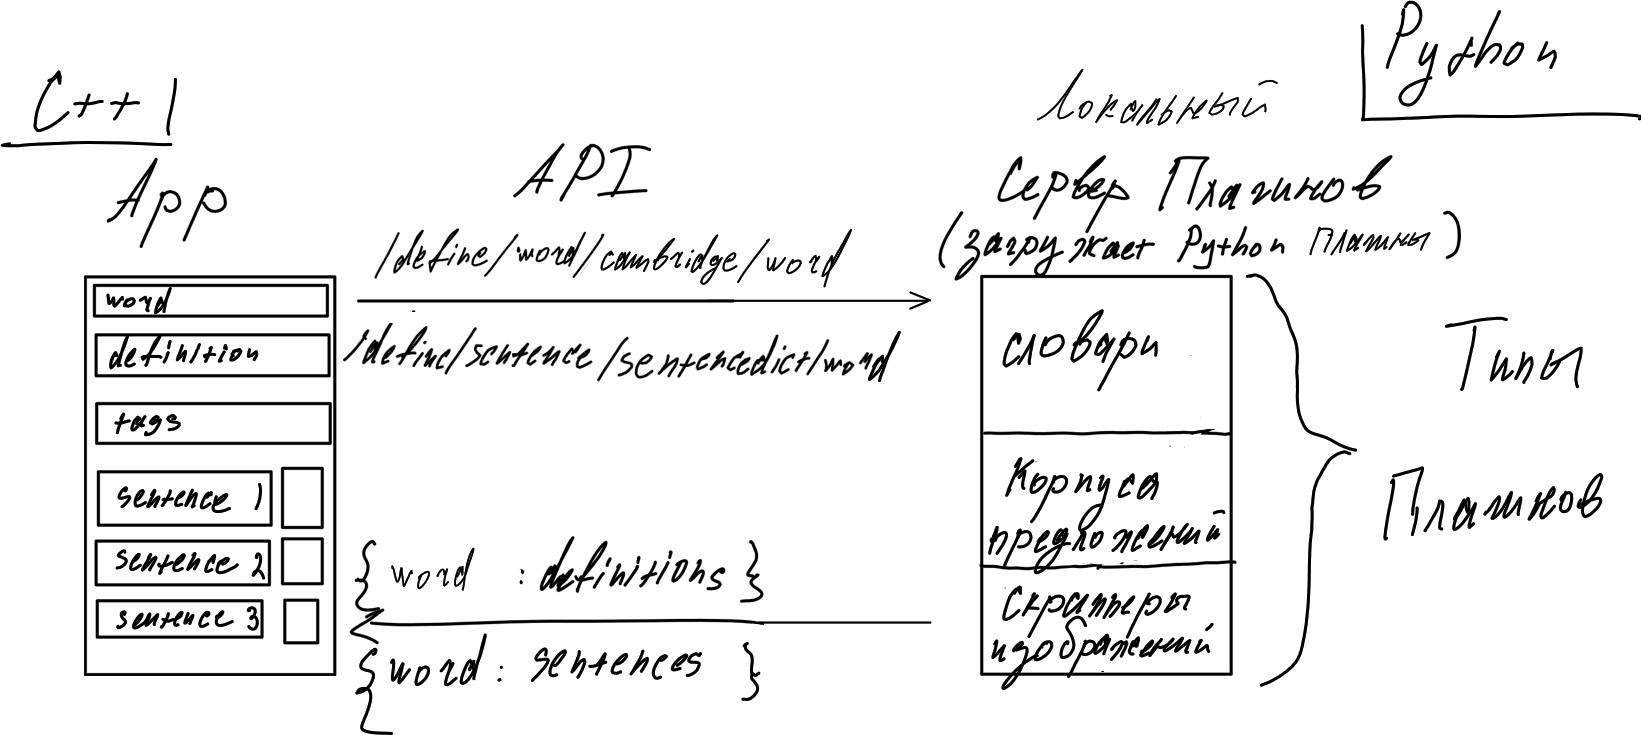 C++
App
word
definition
tags
sentence 1
sentence 2
sentence 3
API
/define/word/cambridge/word
/define/sentence/sentencedict/word
{ word : definitions }
{ word : sentences }
Python
Локальный
Сервер Плагинов
(загружает Python плагины)
словари
Корпуса
предложений
Скрапперы
изображений
Типы
Плагинов